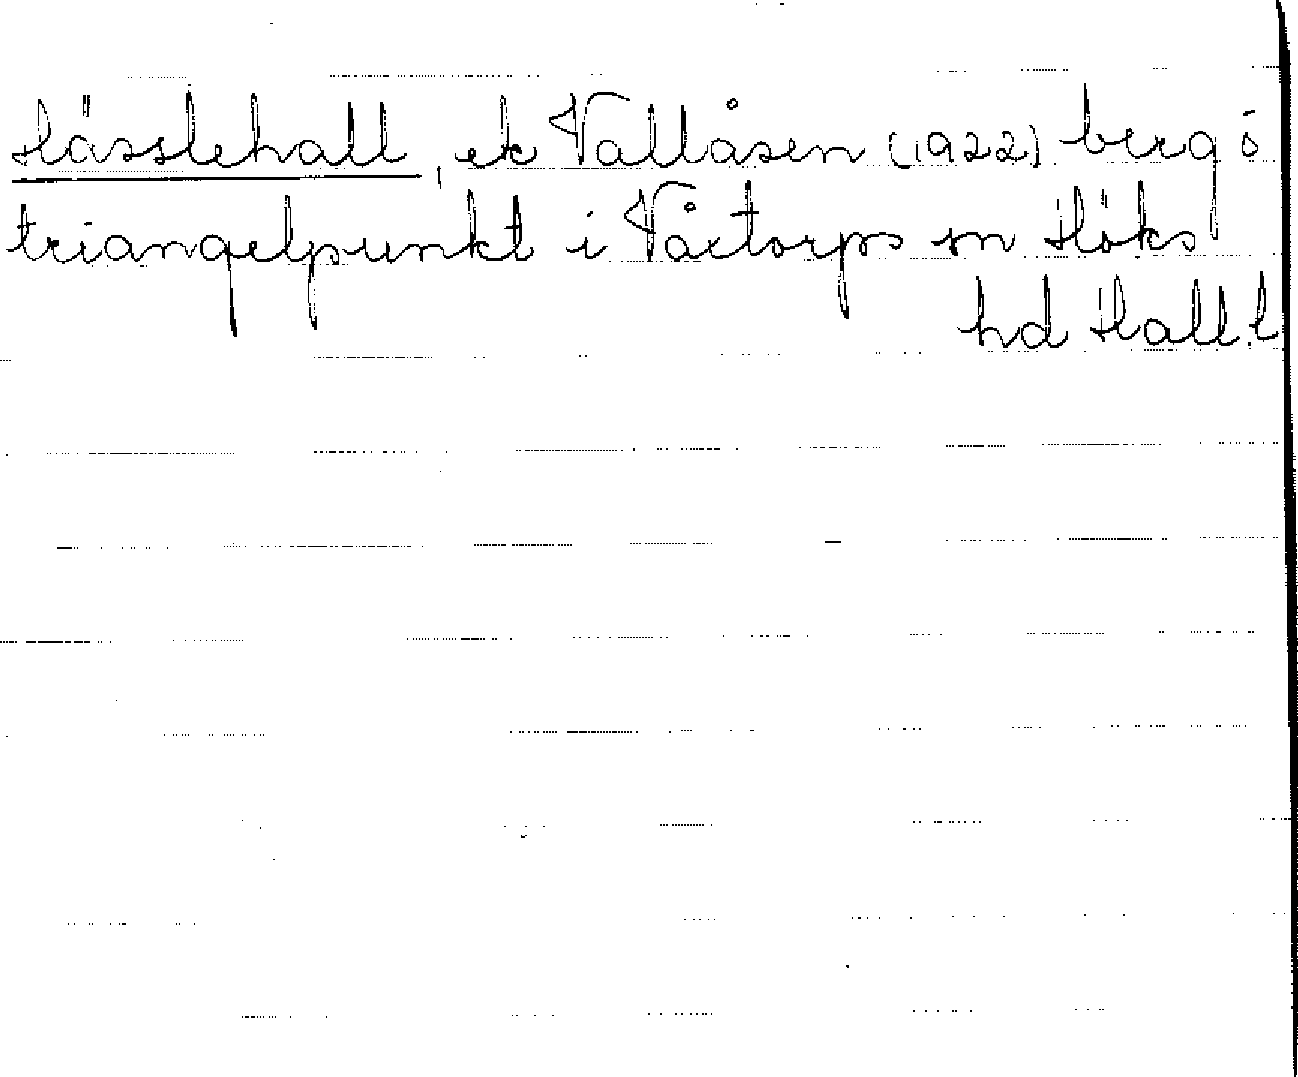 Hässlehall, ek Vallåsen (1922) berg o
triangelpunkt i Våxtorps sn Höks
hd Hall.l